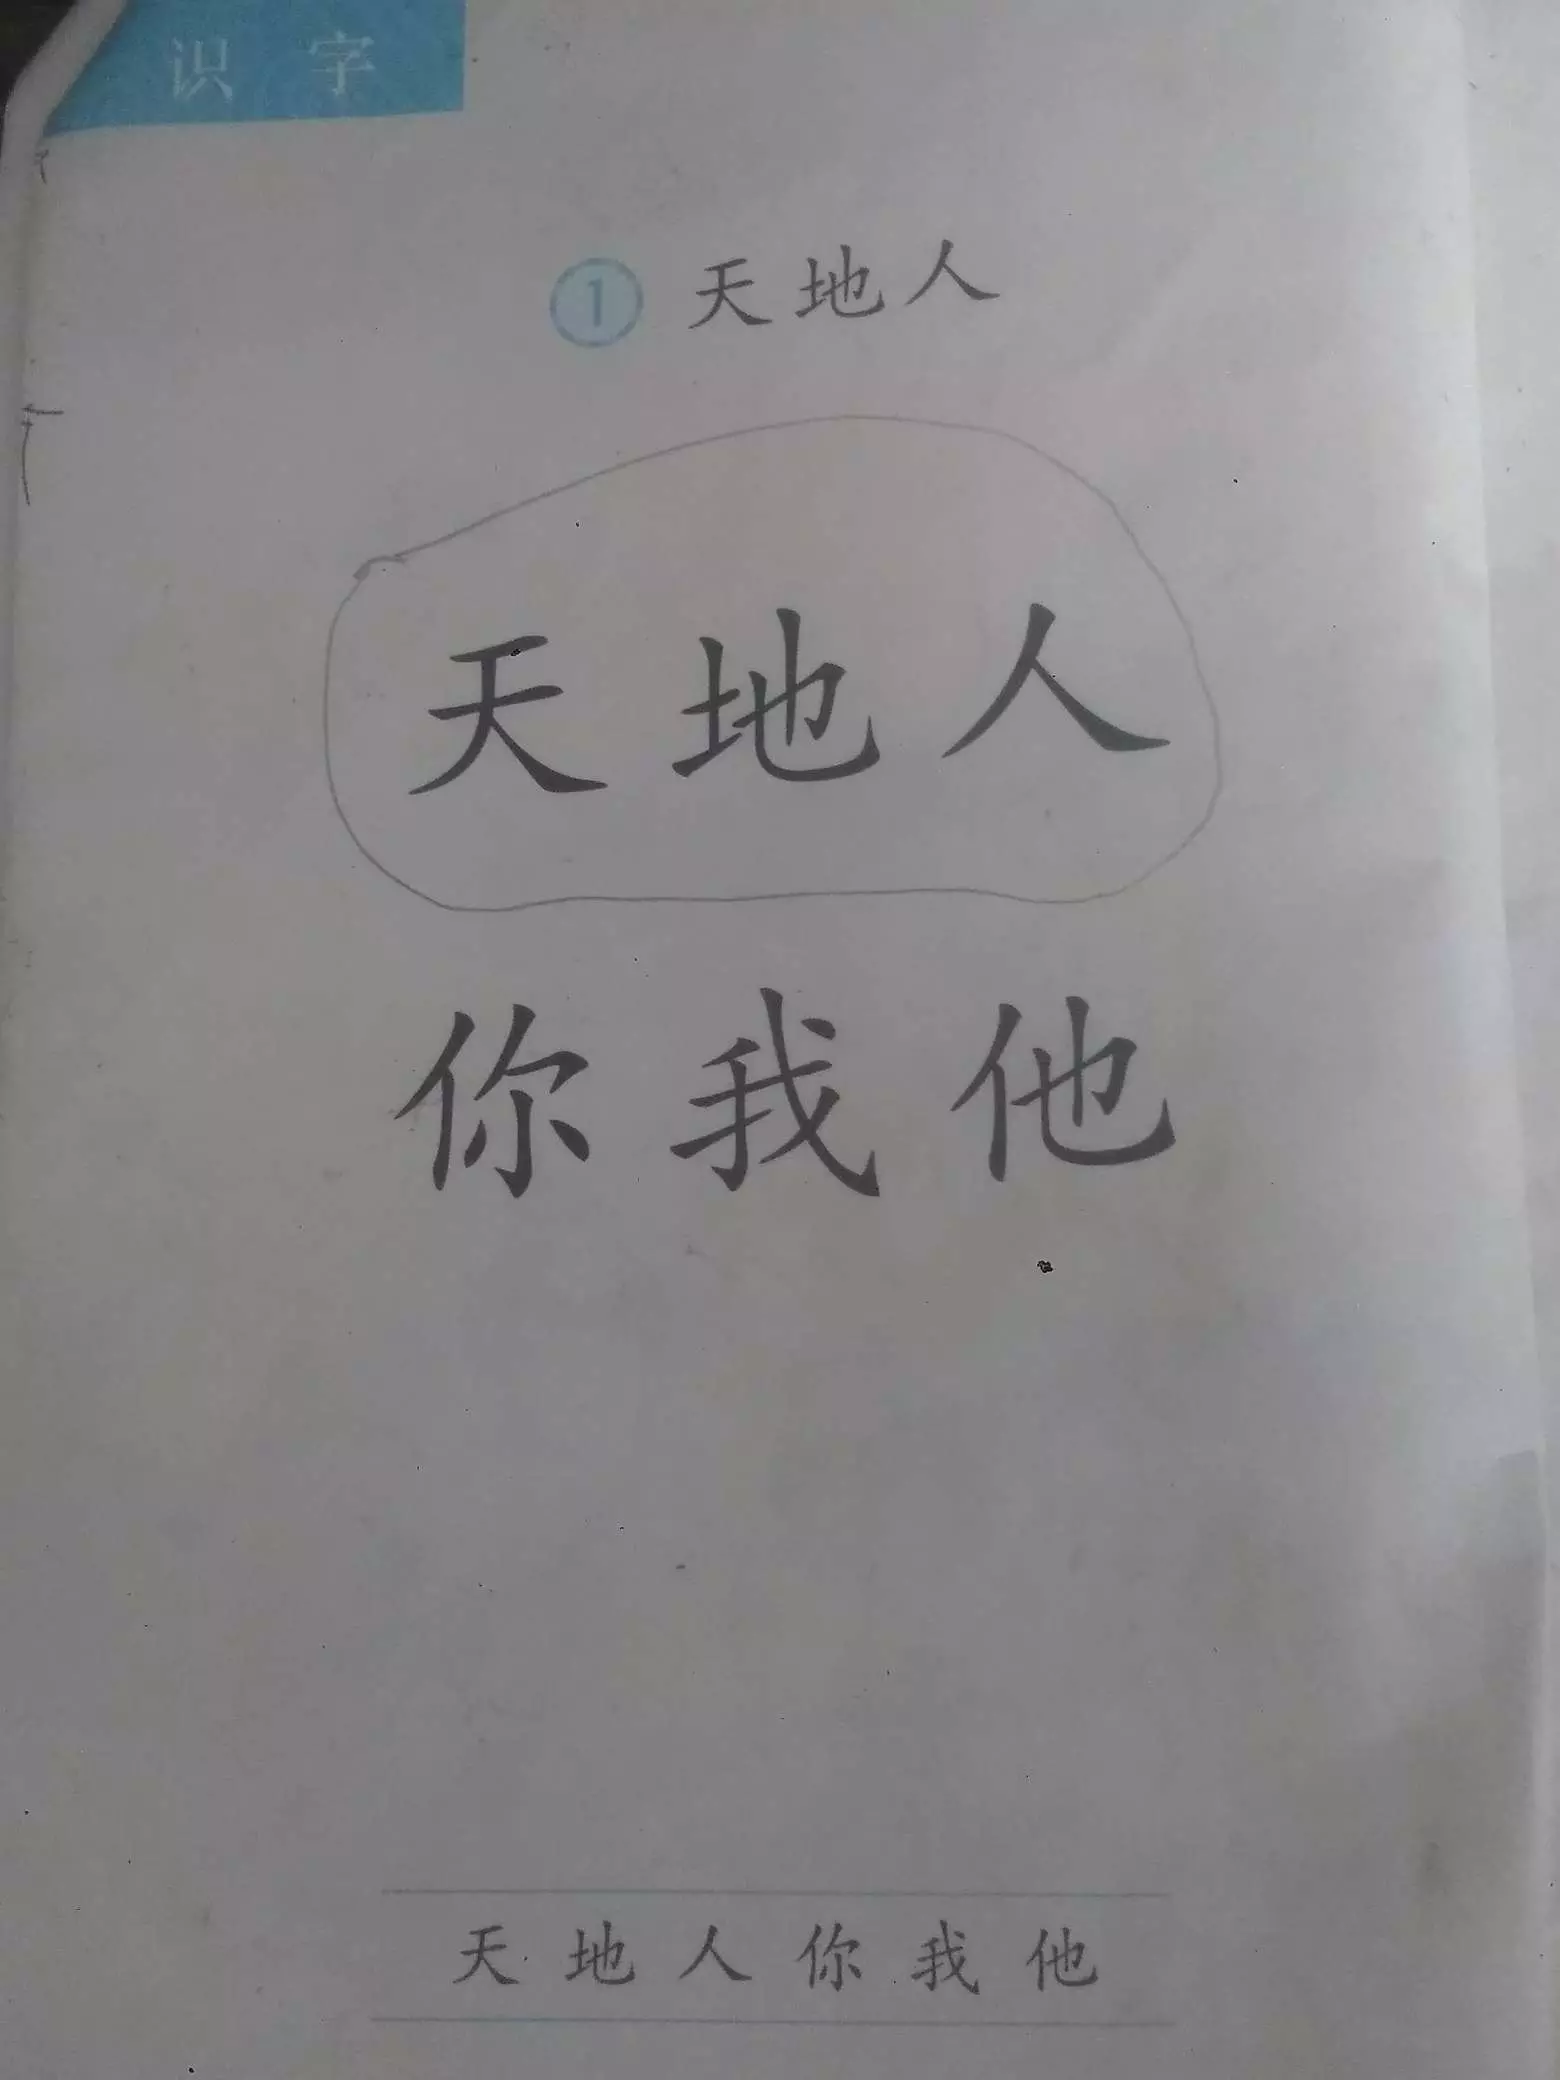 识字
1 天地人
天地人
你我他
天地人你我他